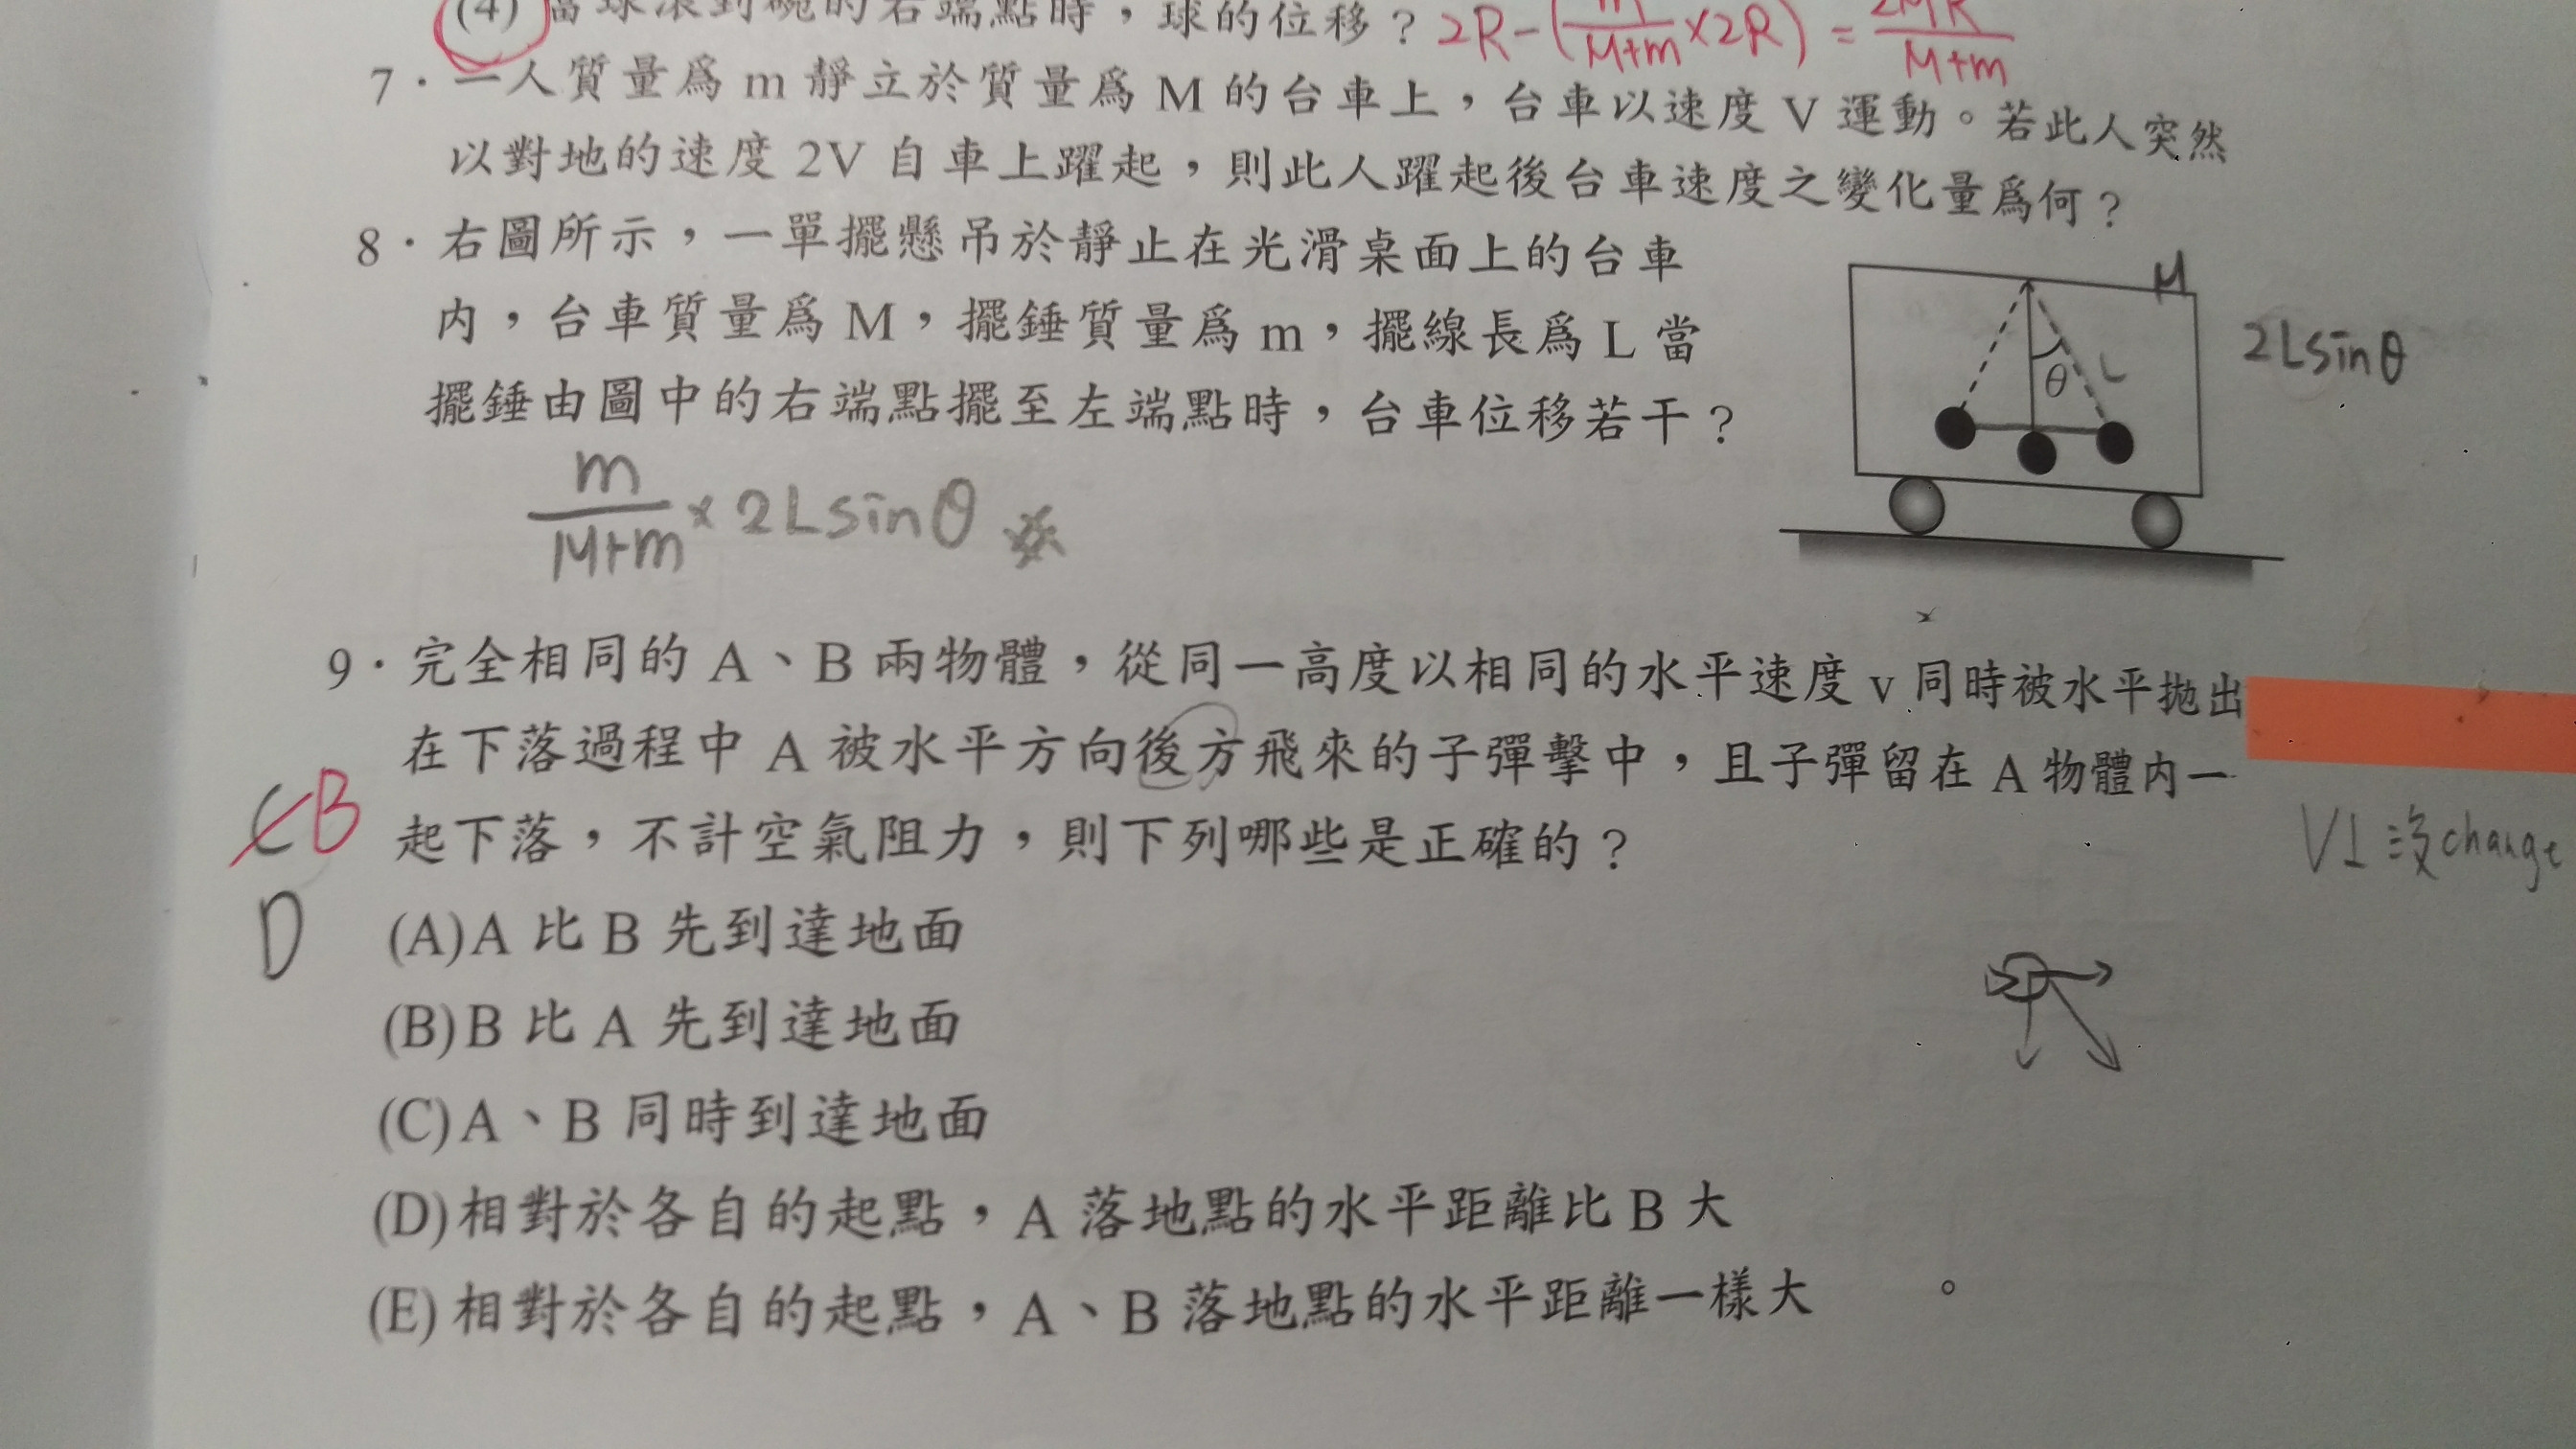 (4) 當球滾到碗的右端點時，球的位移？ 2R-(m/M+m×2R) = 2MR/M+m
7．一人質量爲 m 靜立於質量爲 M 的台車上，台車以速度 V 運動。若此人突然
以對地的速度 2V 自車上躍起，則此人躍起後台車速度之變化量爲何？
8．右圖所示，一單擺懸吊於靜止在光滑桌面上的台車
內，台車質量爲 M，擺錘質量爲 m，擺線長爲 L 當
擺錘由圖中的右端點擺至左端點時，台車位移若干？
M
θ
L
2Lsinθ
m/M+m × 2Lsinθ
9．完全相同的 A、B 兩物體，從同一高度以相同的水平速度 v 同時被水平拋出
在下落過程中 A 被水平方向後方飛來的子彈擊中，且子彈留在 A 物體內一
起下落，不計空氣阻力，則下列哪些是正確的？
C B
D
V⊥沒change
(A)A 比 B 先到達地面
(B)B 比 A 先到達地面
(C)A、B 同時到達地面
(D)相對於各自的起點，A 落地點的水平距離比 B 大
(E)相對於各自的起點，A、B 落地點的水平距離一樣大 。